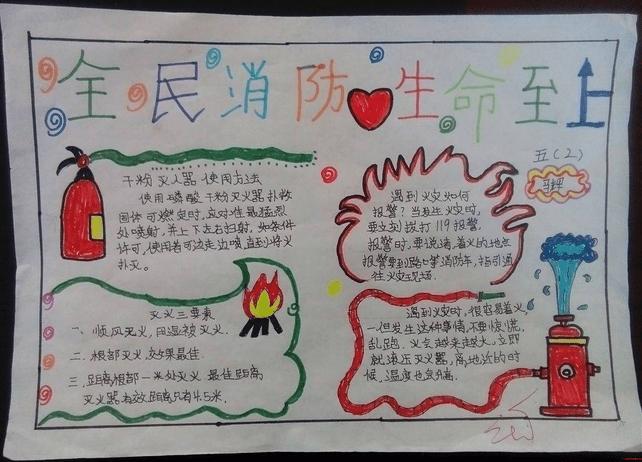 全民消防生命至上
五(2)
干粉灭火器使用方法
使用磷酸干粉灭火器扑救
固体可燃定时,应对准最猛烈
处喷射,并上下左右扫射,如条件
许可,使用者可边走边喷,直到将火
扑灭。
遇到火灾如何
报警?当发生火灾时,
要立刻拨打119报警,
报警时,要说清着火的地点
报警要到路口等消防车,指引通
往火灾现场.
灭火三要素
一、顺风灭火,用湿被灭火.
二、根部灭火,效果最佳.
三、距离根部一米处灭火 最佳距离
灭火器有效距离只有4.5米.
遇到火灾时,很容易着火,
一但发生这种事情,不要惊慌,
乱跑,火会越来越大,立即
就液压灭火器,离地近的时
候,温度也会痛.